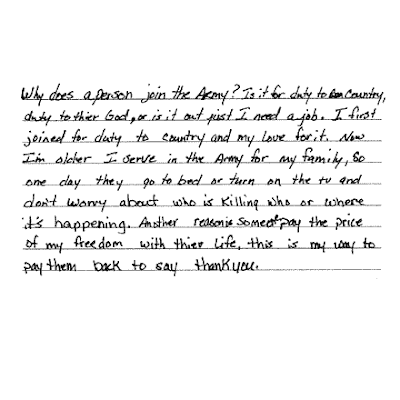 Why does a person join the Army? Is it for duty to our country,
duty to thier God, or is it out just I need a job. I first
joined for duty to country and my love for it. Now
I'm older I serve in the Army for my family, So
one day they go to bed or turn on the tv and
don't worry about who is killing who or where
it's happening. Another reason is pay the price
of my freedom with thier life, this is my way to
pay them back to say thank you.